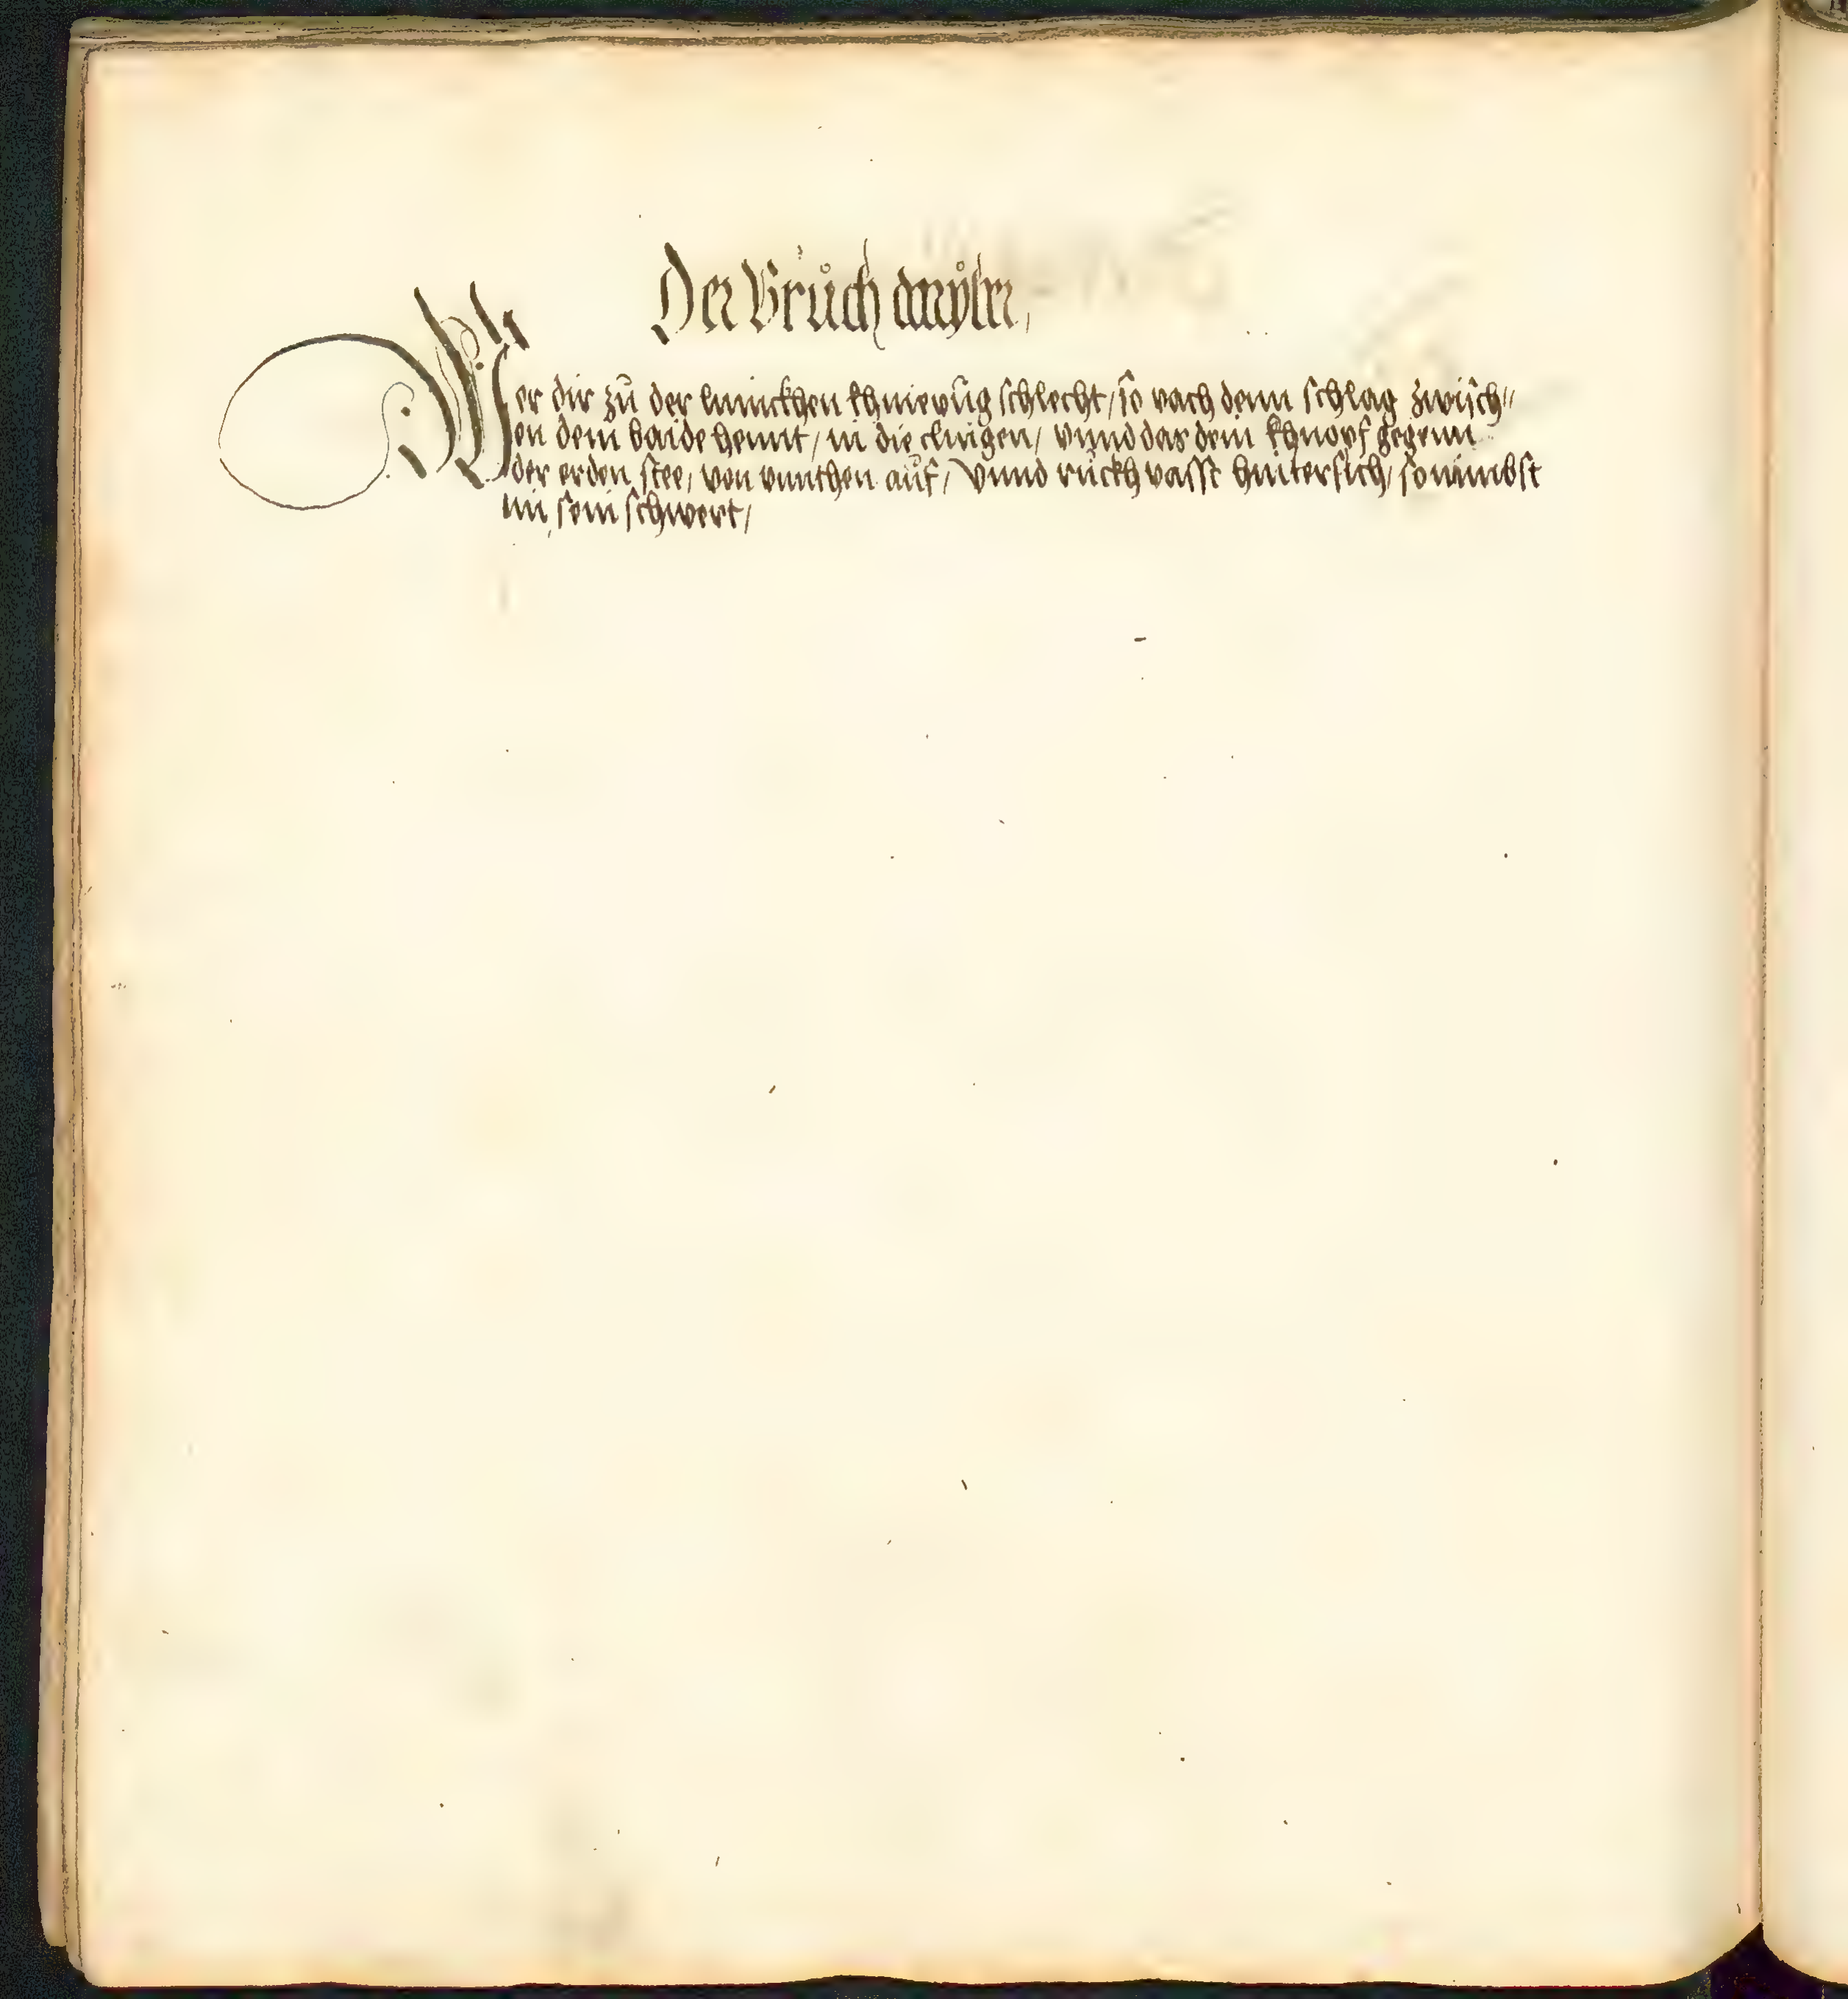 Der Bruch
Wer dir zů der linnckhen khniepůg schlecht, so vach denn schlag zwisch„
en dein baide hennt, in die clingen, vnnd das dein khnopf gegenn
der erden stee, von vnnthen aůf, Vnnd růckh vasst hintersich, so nimbst
im sein schwert,